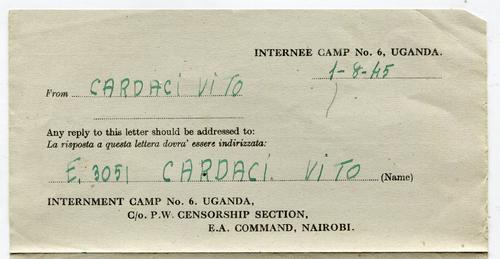 INTERNEE CAMP No. 6, UGANDA.
1-8-45
From CARDACI VITO
Any reply to this letter should be addressed to:
La risposta a questa lettera dovra' essere indirizzata:
E. 3051 CARDACI. VITO (Name)
INTERNMENT CAMP No. 6. UGANDA,
C/o. P.W. CENSORSHIP SECTION,
E.A. COMMAND, NAIROBI.